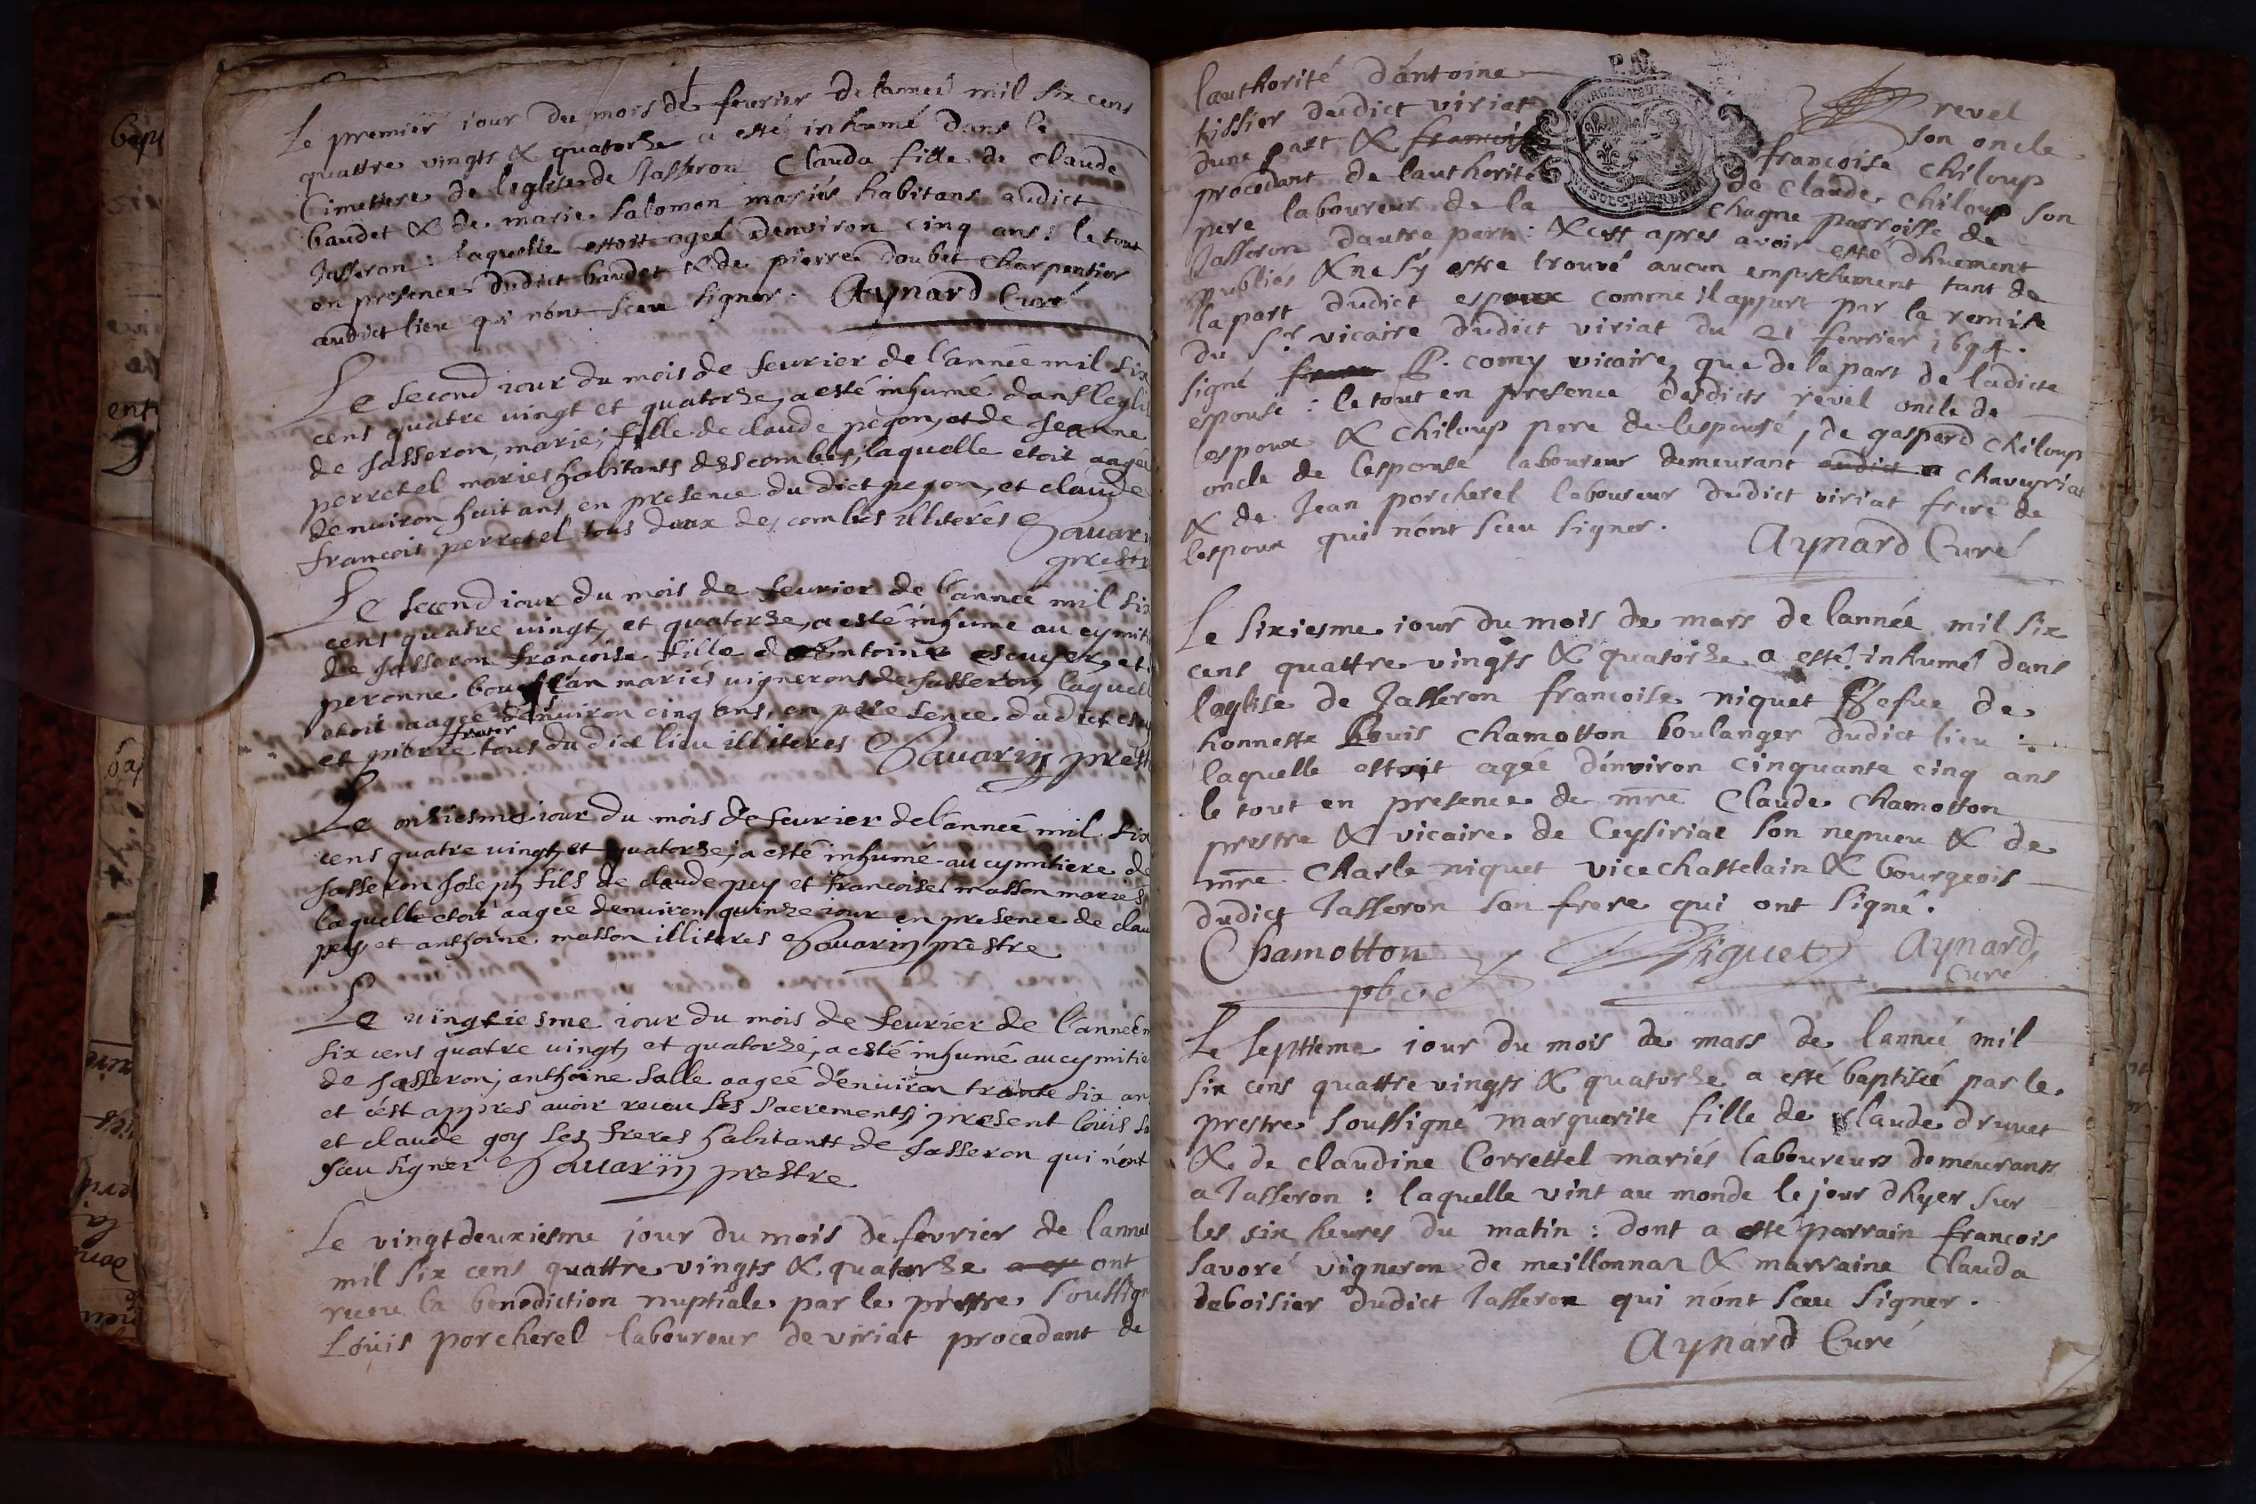 Le premier iour du mois de feurier de lanneé mil six cens
quattre vingts & quatorze a esté inhumé dans le
Cimettiere de leglise de Jasseron Clauda fille de Claude
baudet & de marie Salomon mariés habitans audict
Jasseron : laquelle estoit ageé denviron cinq ans : le tout
en presence dudict baudet & de pierre doubet charpentier
audict lieu qui nónt sceu signer. Aynard Curé
Le second iour du mois de feurier de l'année mil six
cens quatre vingt et quatorze, a esté inhumé dans leglis
de Jasseron, marie, fille de claude pegon, et de Jeanne
perretel mariés habitants des combes, laquelle etoit aageé
denuiron huit ans en presence du dict pegon, et claude
francois perretel tous deux des combes illiterés Sauarin
prestre
Le second iour du mois de feurier de l'anneé mil six
cens quatre vingt, et quatorze, a esté inhumé au cymiti
de Jasseron francoise fille de Antoine escuyer, et
peronne bouillan mariés uignerons de Jasseron, laquell
etoit aageé denuiron cinq ans, en presence du dict escu
frater
et pierre tous du dict lieu illiteres Sauarin prestre
Le onziesme iour du mois de feurier de l'anneé mil six
cens quatre uingt et quatorze, a esté inhumé au cymitiere de
Jasseron Joseph fils de claude pey et francoise masson mariés
laquelle etoit aageé denuiron quinze iour en presence de clau
pey et anthoine masson illiteres Sauarin prestre
Le uingtiesme iour du mois de feurier de l'anneé m
six cens quatre uingt, et quatorze, a esté inhumé au cymitie
de Jasseron, anthoine salle aageé denuiron trante six an
et c'est appres auoir receu les sacrements present louis sa
et claude goy ses freres habitants de Jasseron qui nónt
sceu signer Sauarin prestre
Le vingtdeuxiesme jour du mois de fevrier de lanneé
mil six cens quattre vingts & quatorze a est ont
receu la benediction nuptiale par le prestre soussign
Loüis porcherel laboureur de viriat procedant de
lauthorité dántoine revel
tissier dudict viriat son oncle
dune part & francois francoise chiloup
procedant de lauthorité de Claude Chiloup son
pere laboureur de la chagne parroisse de
Jasseron dautre part : & cest apres avoir esté dhuement
publiés & ne sy estre trouvé aucun empeschement tant de
la part dudict espoux comme il appert par la remise
du Sr vicaire dudict viriat du 21 fevrier 1694.
signé P. comy vicaire, que de la part de ladicte
espouse : le tout en presence desdicts revel oncle de
lespoux & chiloup pere de lespousé, de gaspard chiloup
oncle de lespouse laboureur demeurant audict a chaveyriat
& de Jean porcherel laboureur dudict viriat frere de
lespoux qui nónt sceu signer. Aynard Curé
Le sixiesme iour du mois de mars de lannéé mil six
cens quattre vingts & quatorze a esté inhumé dans
laglise de Jasseron francoise niquet vefue de
honneste Louis chamotton boulanger dudict lieu :
laquelle estoit ageé dénviron cinquante cinq ans
le tout en presence de mre Claude chamotton
prestre & vicaire de Ceysiriat son nepueu & de
mre Charle niquet vice chastelain & bourgeois
dudict Jasseron son frere qui ont signé.
Chamotton Niguet Aynard
pbre Curé
Le septieme iour du mois de mars de lanneé mil
six cens quattre vingts & quatorze a esté baptiseé par le
prestre soussigné marguerite fille de Claude druuet
& de claudine Correttel mariés laboureurs demeurants
a Jasseron : laquelle vint au monde le jour dhyer sur
les six heures du matin : dont a esté parrain francois
savoré vigneron de meillonnaz & marraine Clauda
deboisier dudict Jasseron qui nónt sceu signer.
Aynard Curé